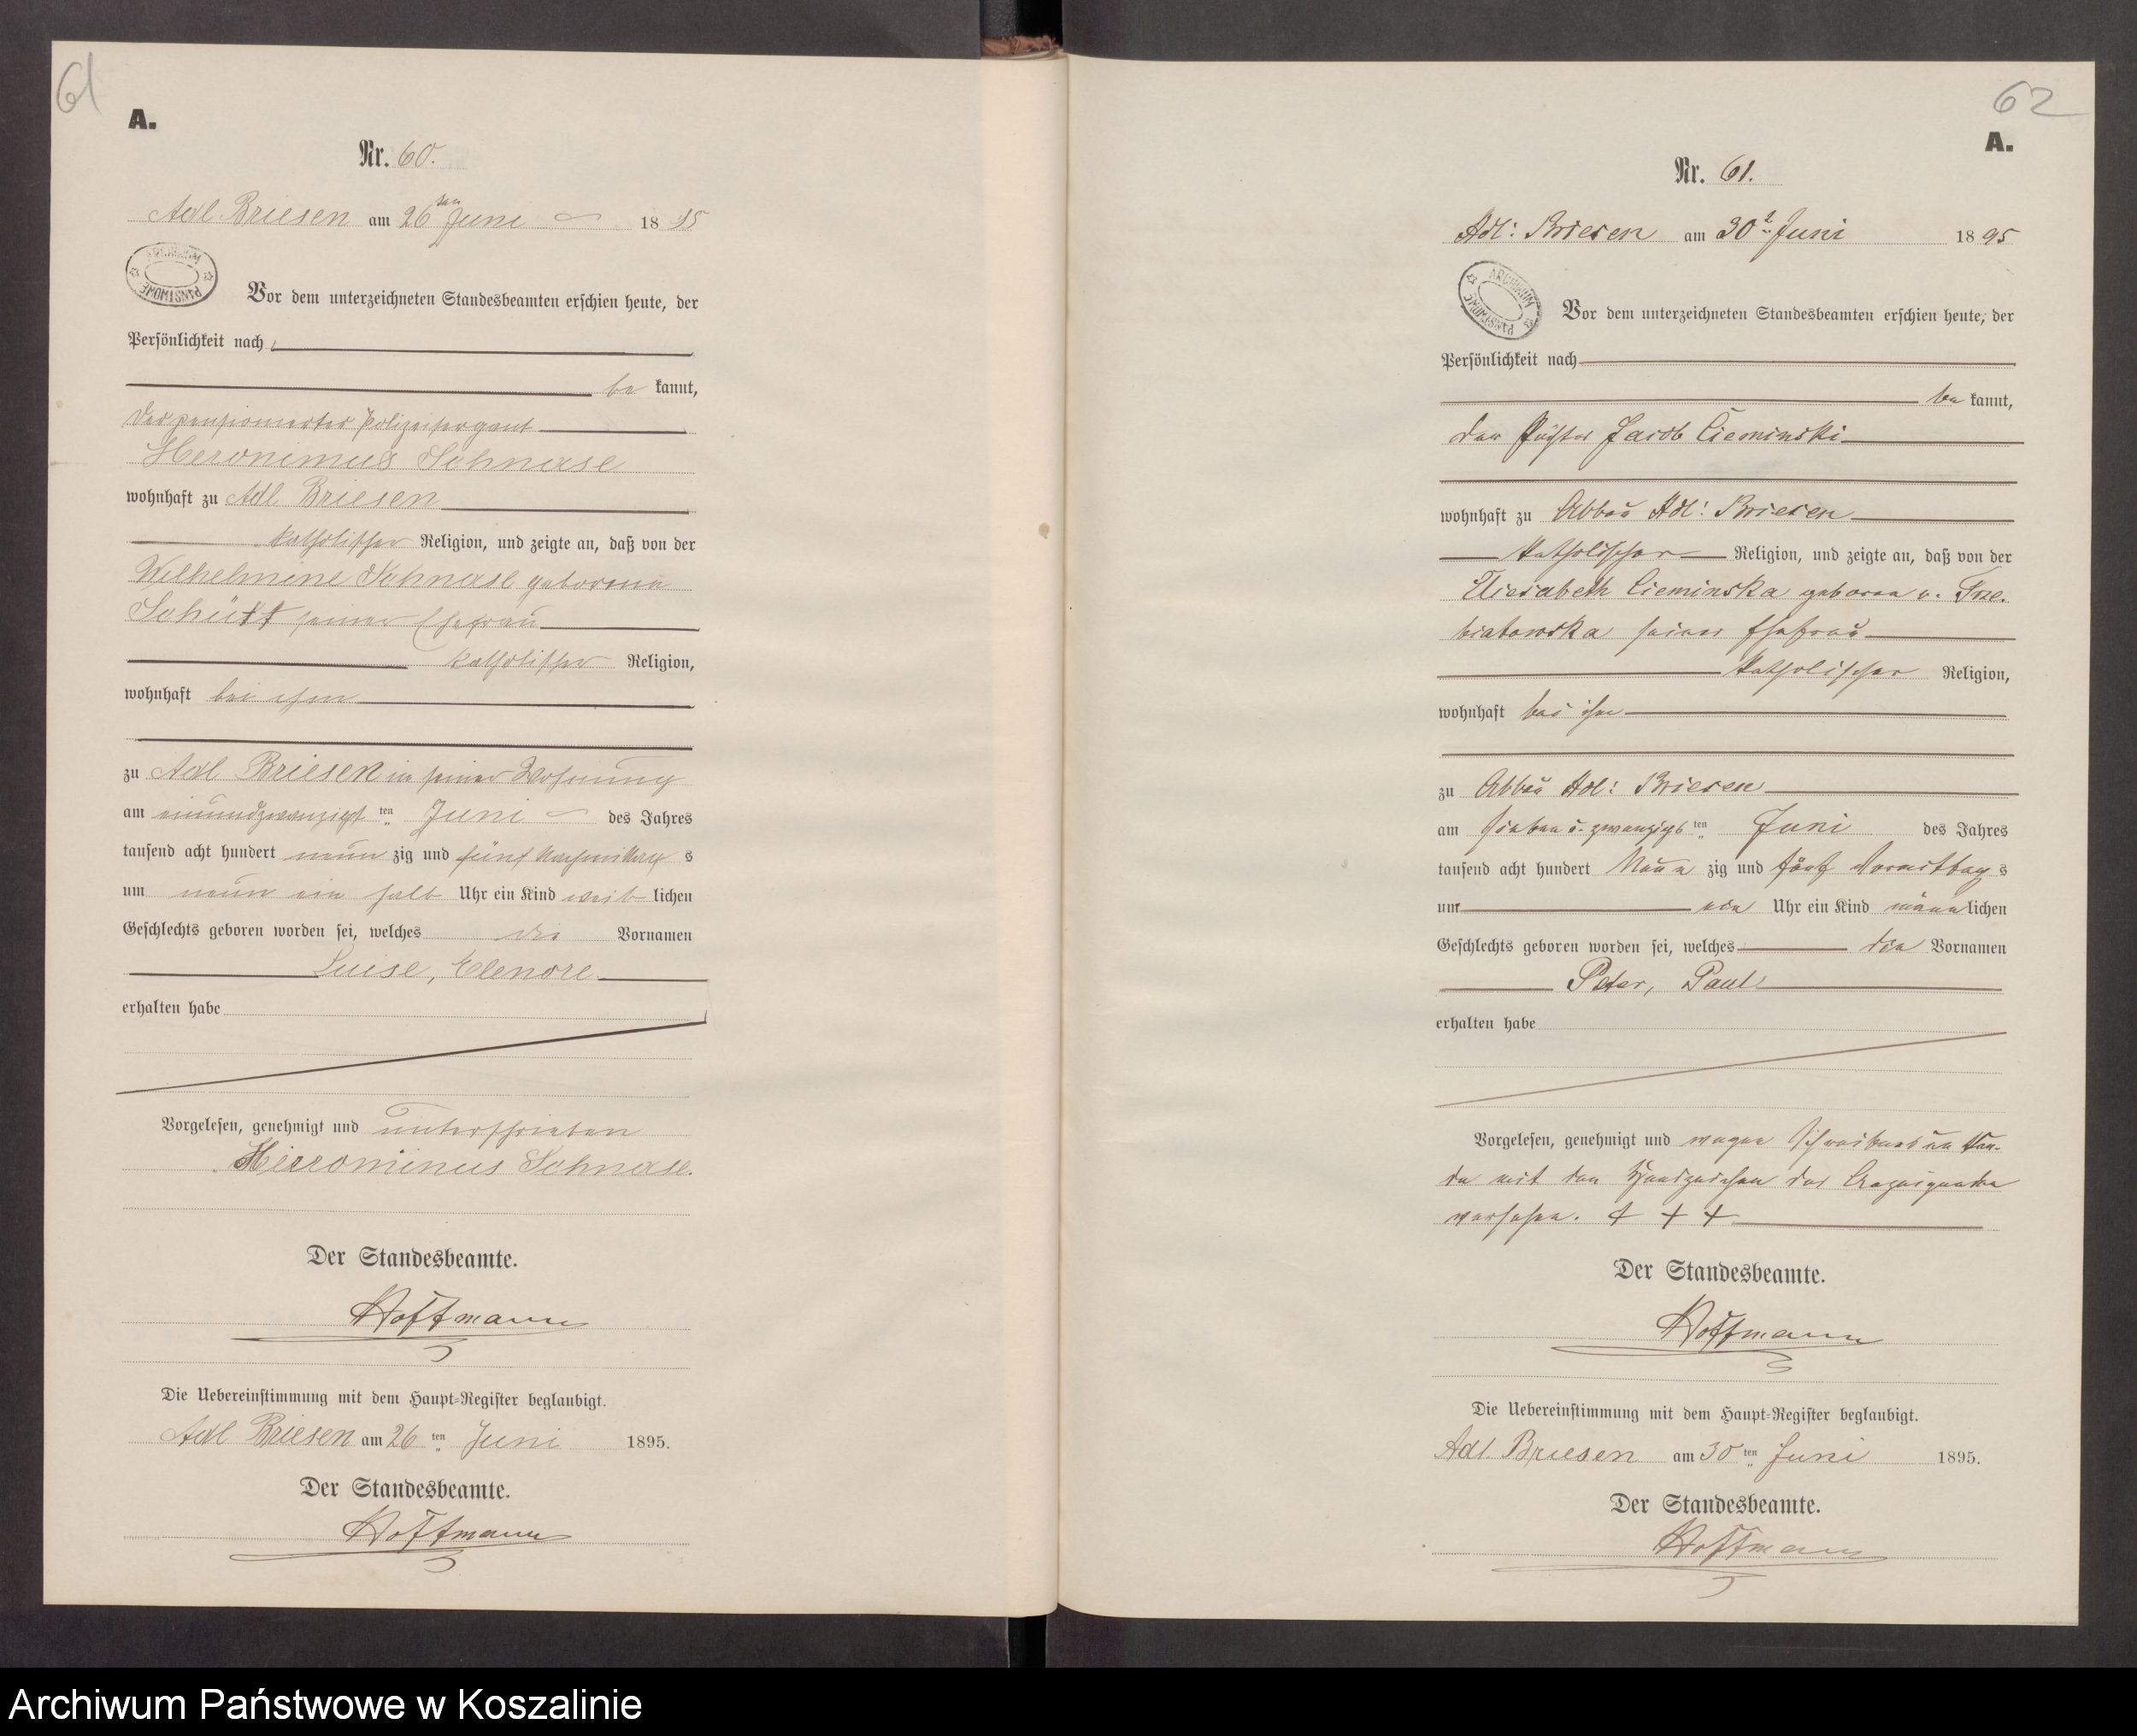 61
A.
Nr. 60.
Adl. Briesen am 26ten Juni 1895
ARCHIWUM PAŃSTWOWE
Vor dem unterzeichneten Standesbeamten erschien heute, der
Persönlichkeit nach
be kannt,
der pensionierter Polizeisergant
Heronimus Schnase
wohnhaft zu Adl. Briesen
katholischer Religion, und zeigte an, daß von der
Wilhelmine Schnase geborene
Schütt seiner Ehefrau
katholischer Religion,
wohnhaft bei ihm
zu Adl Briesen in seiner Wohnung
am einundzwanzigsten Juni des Jahres
tausend acht hundert neun zig und fünf Nachmittag s
um neun ein halb Uhr ein Kind weib lichen
Geschlechts geboren worden sei, welches die Vornamen
Luise, Elenore
erhalten habe
Vorgelesen, genehmigt und unterschrieben
Hierrominus Schnase.
Der Standesbeamte.
Hoffmann
Die Uebereinstimmung mit dem Haupt-Register beglaubigt.
Adl Briesen am 26 ten Juni 1895.
Der Standesbeamte.
Hoffmann
62
A.
Nr. 61.
Adl: Briesen am 30 Juni 1895
ARCHIWUM PAŃSTWOWE
Vor dem unterzeichneten Standesbeamten erschien heute, der
Persönlichkeit nach
be kannt,
der Jacob Cieminski
wohnhaft zu Abbau Adl: Briesen
katholischer Religion, und zeigte an, daß von der
Eliesabeth Cieminska geboren v. Trze-
biatowska seiner Ehefrau
katholischer Religion,
wohnhaft bei ihm
zu Abbau Adl: Briesen
am sieben u. zwanzigs ten Juni des Jahres
tausend acht hundert Neun zig und fünf Vormittag s
um ein Uhr ein Kind männ lichen
Geschlechts geboren worden sei, welches die Vornamen
Peter, Paul
erhalten habe
Vorgelesen, genehmigt und wegen Schreibensunkun-
de mit den Handzeichen des Anzeigenden
versehen. + + +
Der Standesbeamte.
Hoffmann
Die Uebereinstimmung mit dem Haupt-Register beglaubigt.
Adl. Briesen am 30 ten Juni 1895.
Der Standesbeamte.
Hoffmann
Archiwum Państwowe w Koszalinie